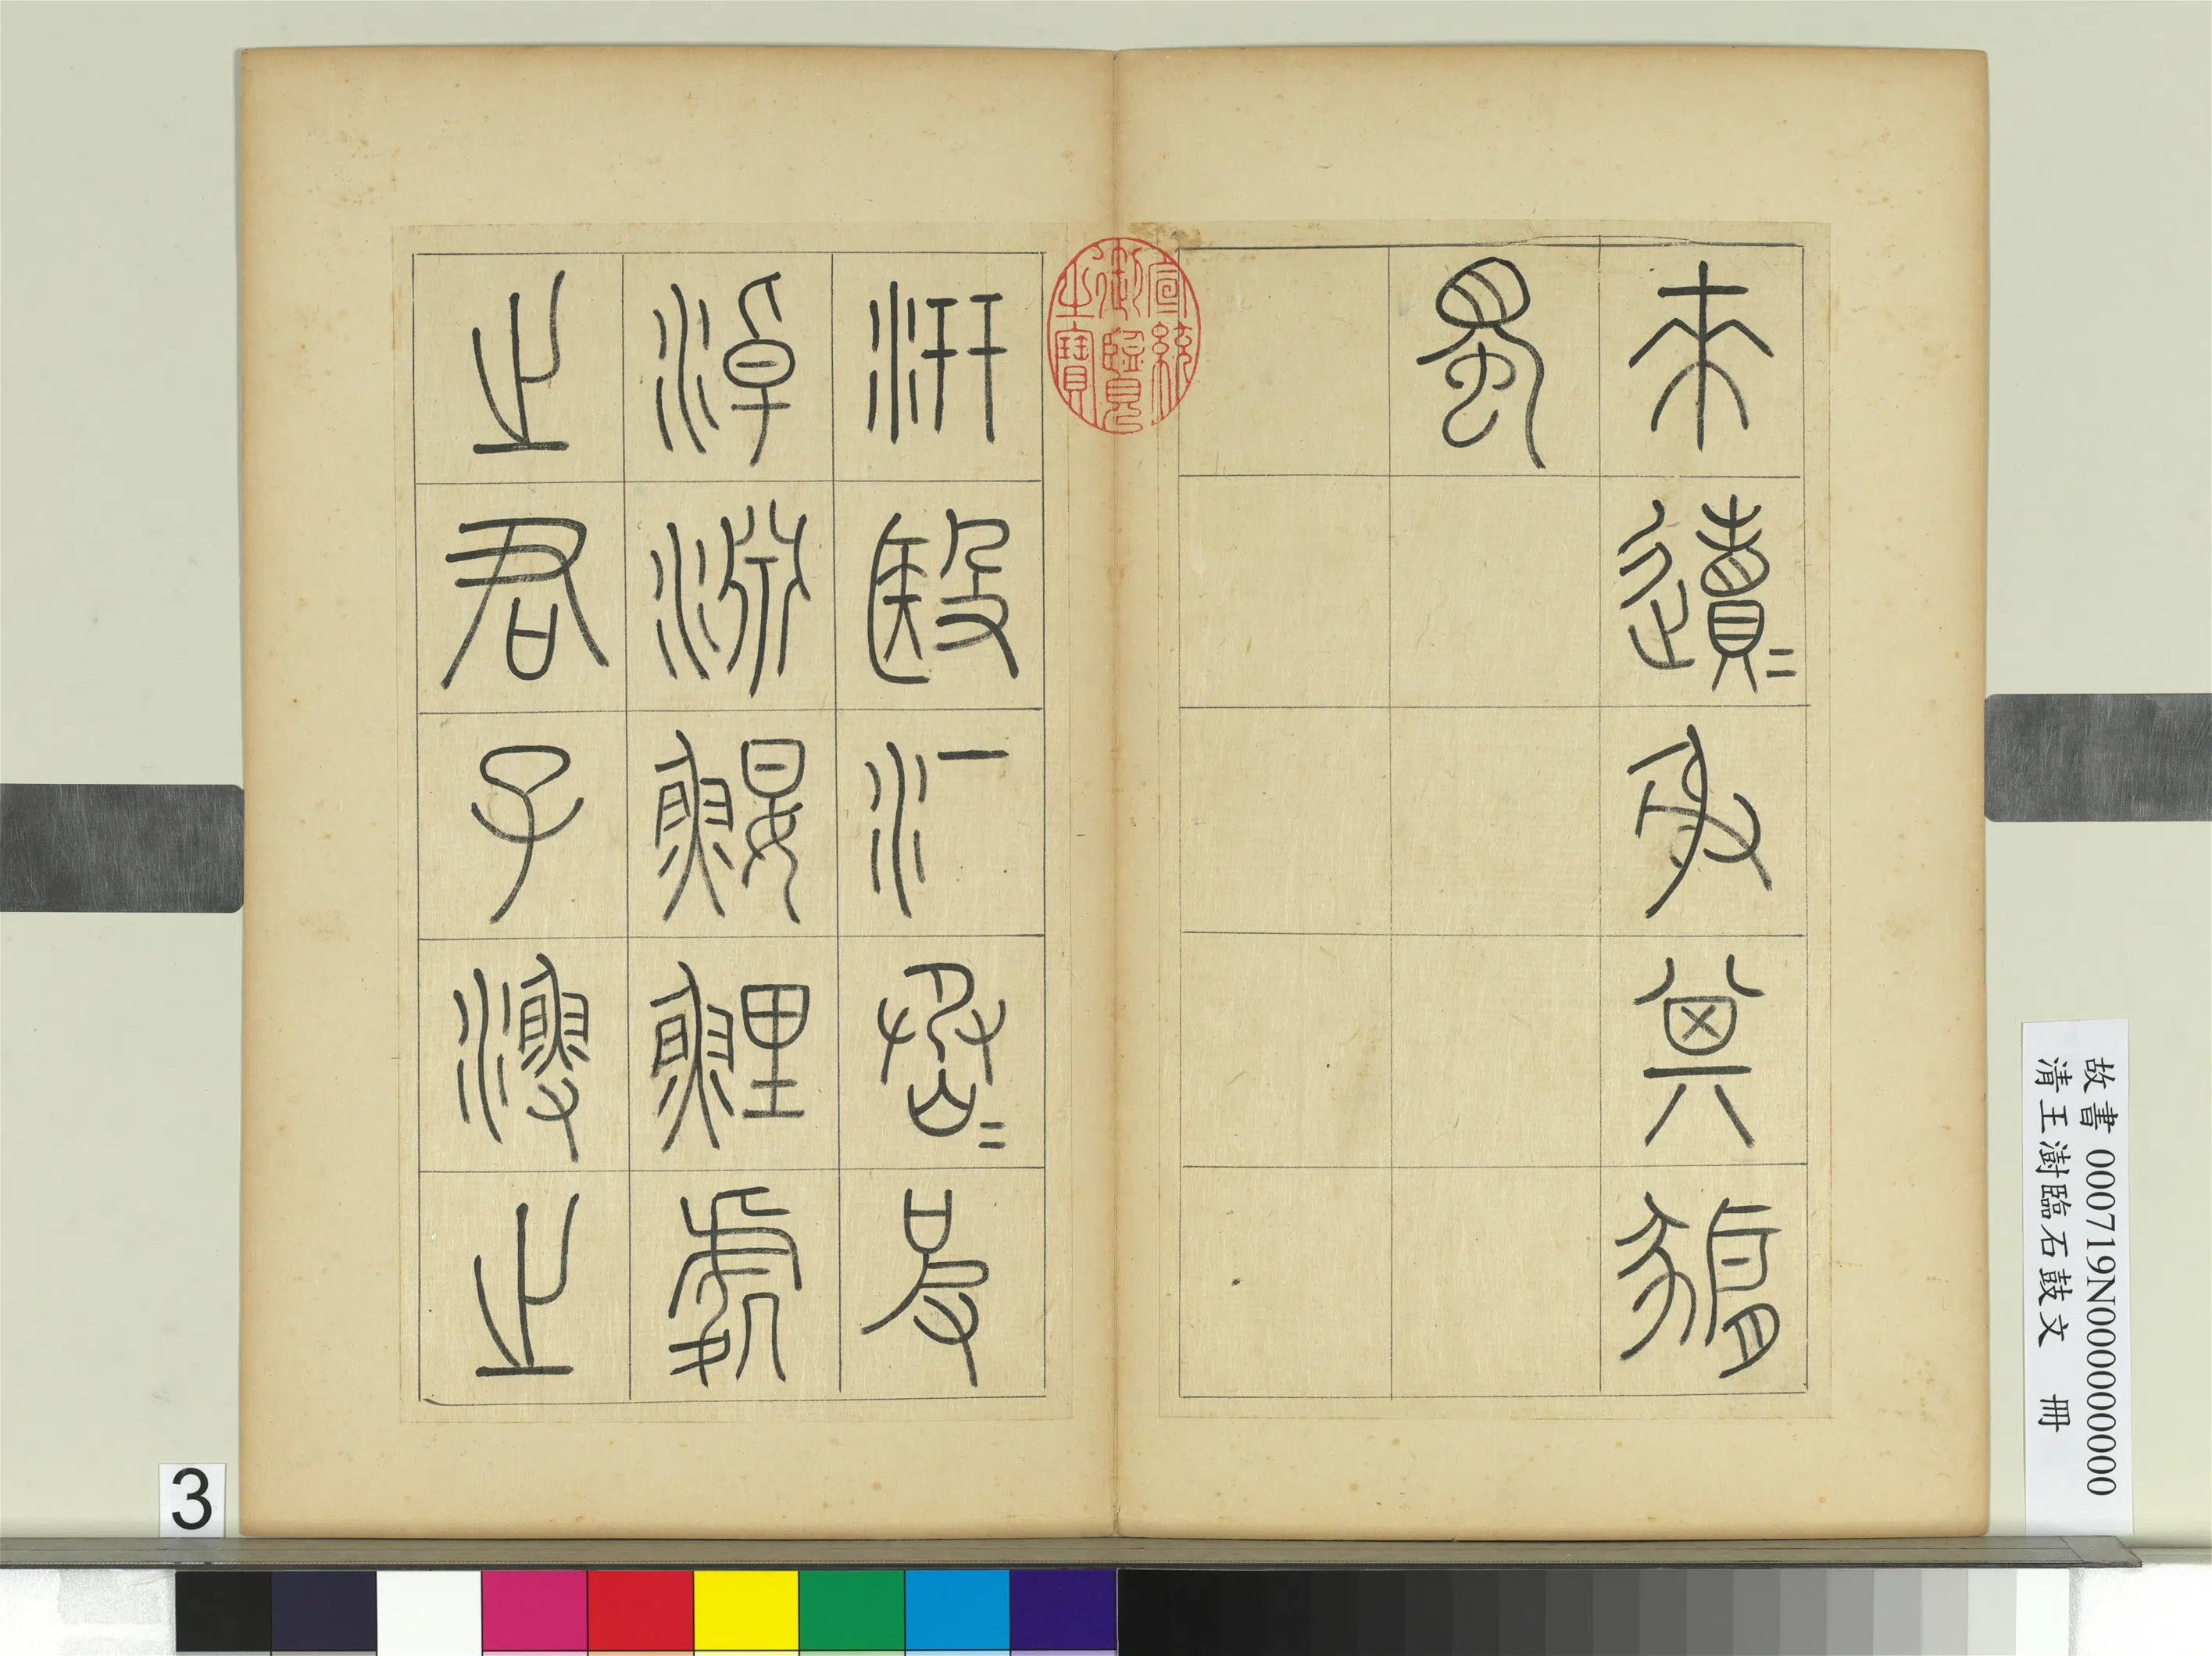 來䢱=射其豜
蜀
宣統
御覽
之寶
汧殹沔丞=皮
淖淵鰋鯉處
之君子漁之
故書 000719N000000000
清王澍臨石鼓文 冊
3